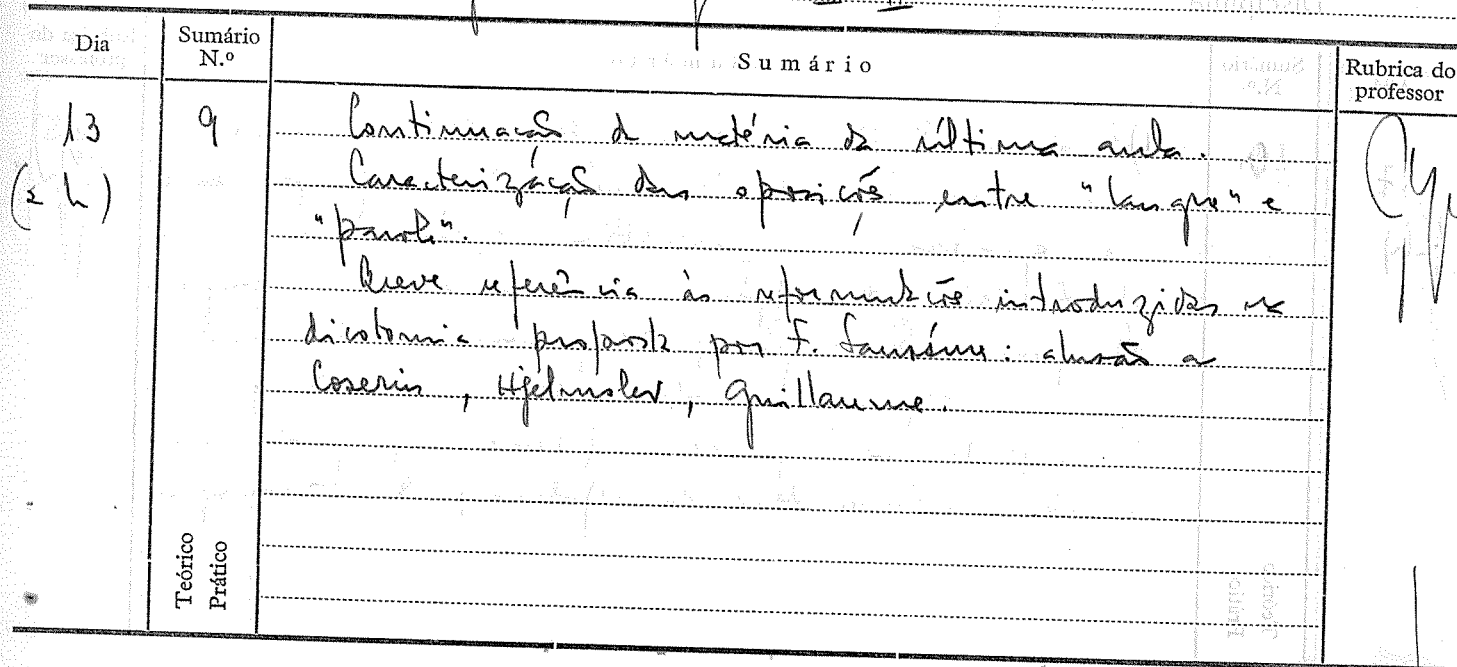 Dia
Sumário N.º
Sumário
Rubrica do professor
13
(2 h)
9
Continuação da matéria da última aula.
Caracterização das oposições entre "langue" e
"parole".
Breve referência às reformulações introduzidas na
dicotomia proposta por F. Saussure: alusão a
Coseriu, Hjelmslev, Guillaume.
Teórico
Prático